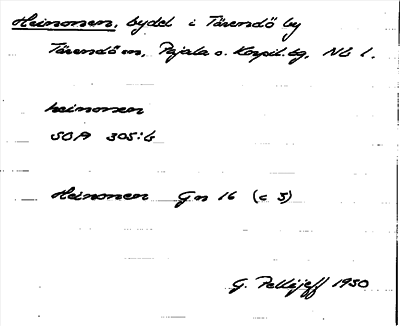 Heinonen, bydel i Tärendö by
Tärendö sn, Pajala o. Korpil. tg, Nb l.
heinonen
SOA 305:6
Heinonen Gn 16 (c 5)
G. Pellijeff 1930